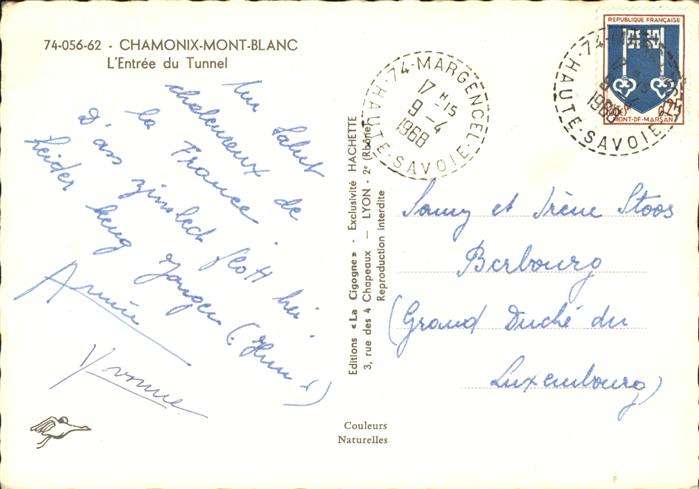 74-056-62 - CHAMONIX-MONT-BLANC
L'Entrée du Tunnel
Un Salut
chaleureux de
la France.
D'ass zimlech flott hei,
leider keng Jongen (Hum!)
Annie
Yvonne
Couleurs
Naturelles
Editions « La Cigogne » - Exclusivité HACHETTE
3, rue des 4 Chapeaux — LYON - 2e (Rhône)
Reproduction interdite
74-MARGENCEL
17 H-15
9-4
1968
HAUTE-SAVOIE
REPUBLIQUE FRANÇAISE
0,25
MONT-DE-MARSAN
1968
HAUTE-SAVOIE
Samy et Irène Stoos
Berbourg
(Grand Duché du
Luxembourg)